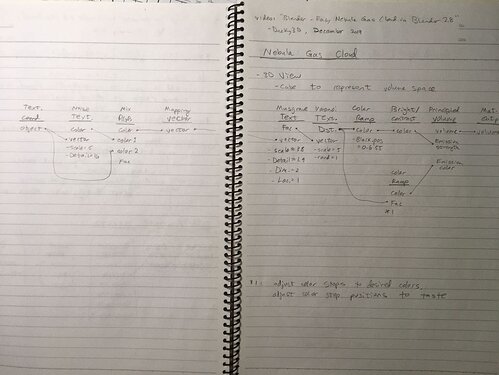 video: "Blender - Easy Nebula Gas Cloud in Blender 2.8"
- Ducky3D, December 2019
Nebula Gas Cloud
- 3D View
- Cube to represent volume space
Text. Noise Mix Mapping
coord. Text. RGB vector
object color color vector
vector color1
- scale = 5 color2
- Detail = 16 Fac
Musgrave Voronoi Color Bright/ Principled
Text Text. Ramp contrast volume
Fac Dist. color color volume volume
vector vector - Black pos Emission
- scale = - scale = 5 strength
- rand = 1
- Dim. = 2
- Lac. = 1
color Emission
Ramp color
color
Fac
*1
*1: adjust color stops to desired colors,
adjust color stop positions to taste